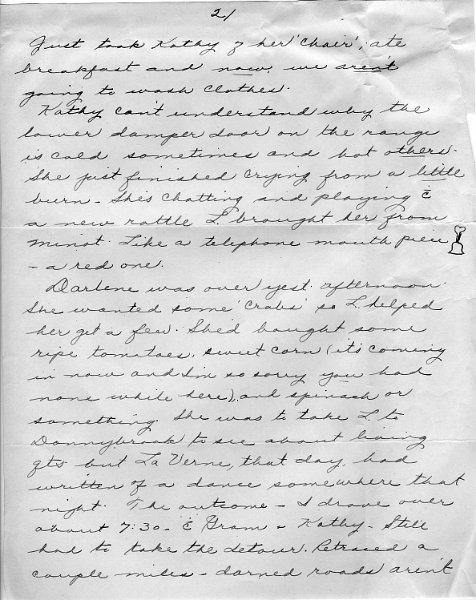 2/
Just took Kathy of her 'chair', ate
breakfast and now we aren't
going to wash clothes.
Kathy can't understand why the
lower damper door on the range
is cold sometimes and hot others.
She just finished crying from a little
burn - She's chatting and playing c̄
a new rattle L. brought her from
Minot. Like a telephone mouth piece
- a red one.
Darlene was over yest. afternoon.
She wanted some 'crabs' so L. helped
her get a few. She'd bought some
ripe tomatoes, sweet corn (it's coming
in now and I'm so sorry you had
none while here), and spinach or
something. She was to take L. to
Donnybrook to see about living
qts but La Verne, that day, had
written of a dance somewhere that
night. The outcome - I drove over
about 7:30 - c̄ Gram & Kathy - Still
had to take the detour. Retraced a
couple miles - darned roads aren't